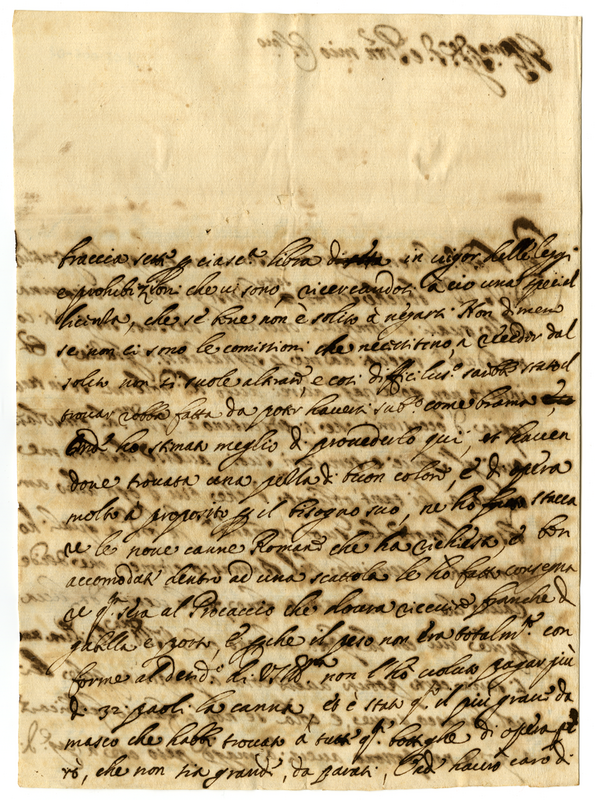 braccia sett.e p ciasc.a libra in vigor delle leggi
e prohibizioni che vi sono, ricercandosi a ciò una special
licenza, che se bene non è solito à negarsi. Non dimen
se non ci sono le comissioni che necessitino, a receder dal
solito non si suole alterare, e così difficilm.e sarebbe stato il
trovar robba fatta da poter haversi sub.o come brama
Ond. ho stimat meglio di provederlo qui, et haven
done trovata una pella di buon colore, e di opera
molto à proposito p il bisogno suo, ne ho stacca
re le nove canne Romane che ha richiesto, e ben
accomodate dentro ad una scattola le ho fatte consegna
re q.ta sera al Procaccio che dovera riceverle franche di
gabella e porto, E p che il peso non era totalm.te con
forme al di V.S. Ill.ma non l'hò voluto pagar più
di 32 paoli la canna et è stato q.o il più grave da
masco che habbi trovato à tutte q.e botteghe di opera pe
rò, che non sia grande, da parati, havrò caro di